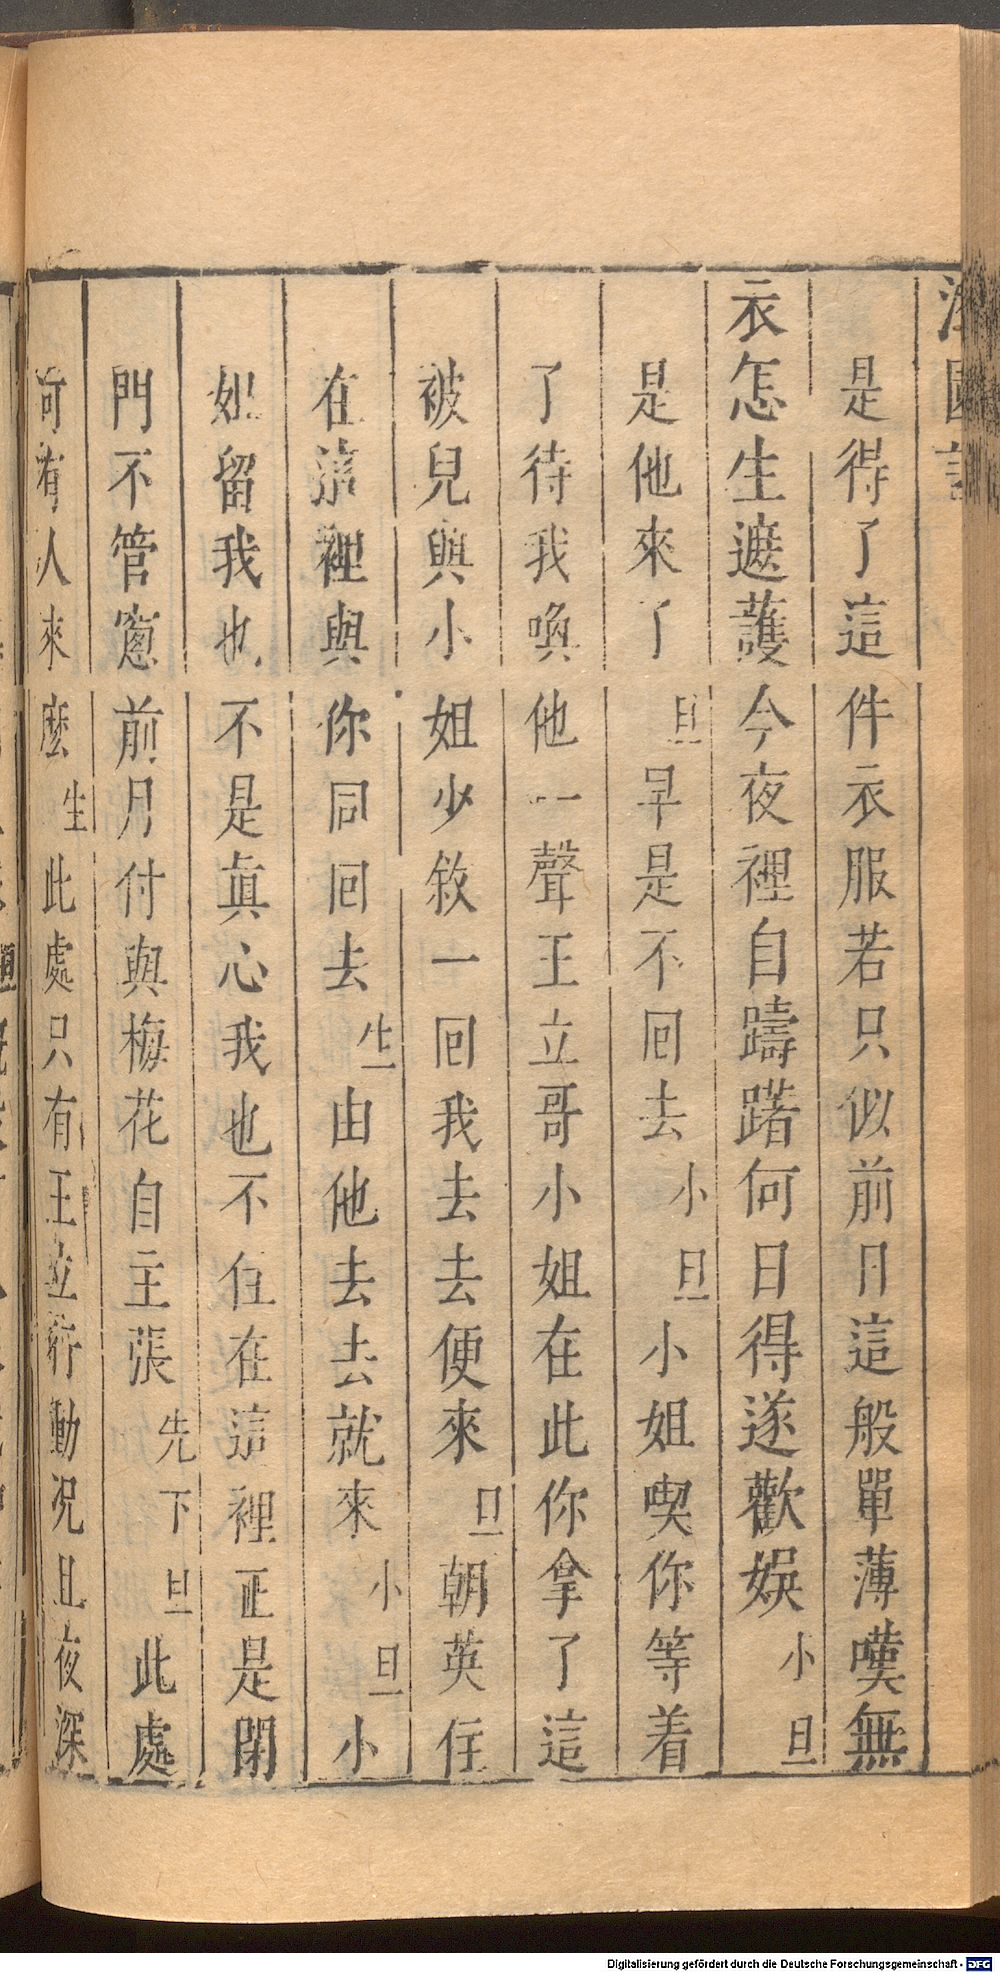 是得了這件衣服若只似前日這般單薄嘆無
衣怎生遮護今夜裡自躊躇何日得遂歡娛小旦
是他來了旦早是不囘去小旦小姐喫你等着
了待我喚他一聲王立哥小姐在此你拿了這
被兒與小姐少敘一囘我去去便來旦朝英住
在這裡與你同囘去生由他去去就來小旦小
姐留我也不是眞心我也不住在這裡正是閉
門不管窻前月付與梅花自主張先下旦此處
何有人來麽生此處只有王立行動况且夜深
Digitalisierung gefördert durch die Deutsche Forschungsgemeinschaft - DFG